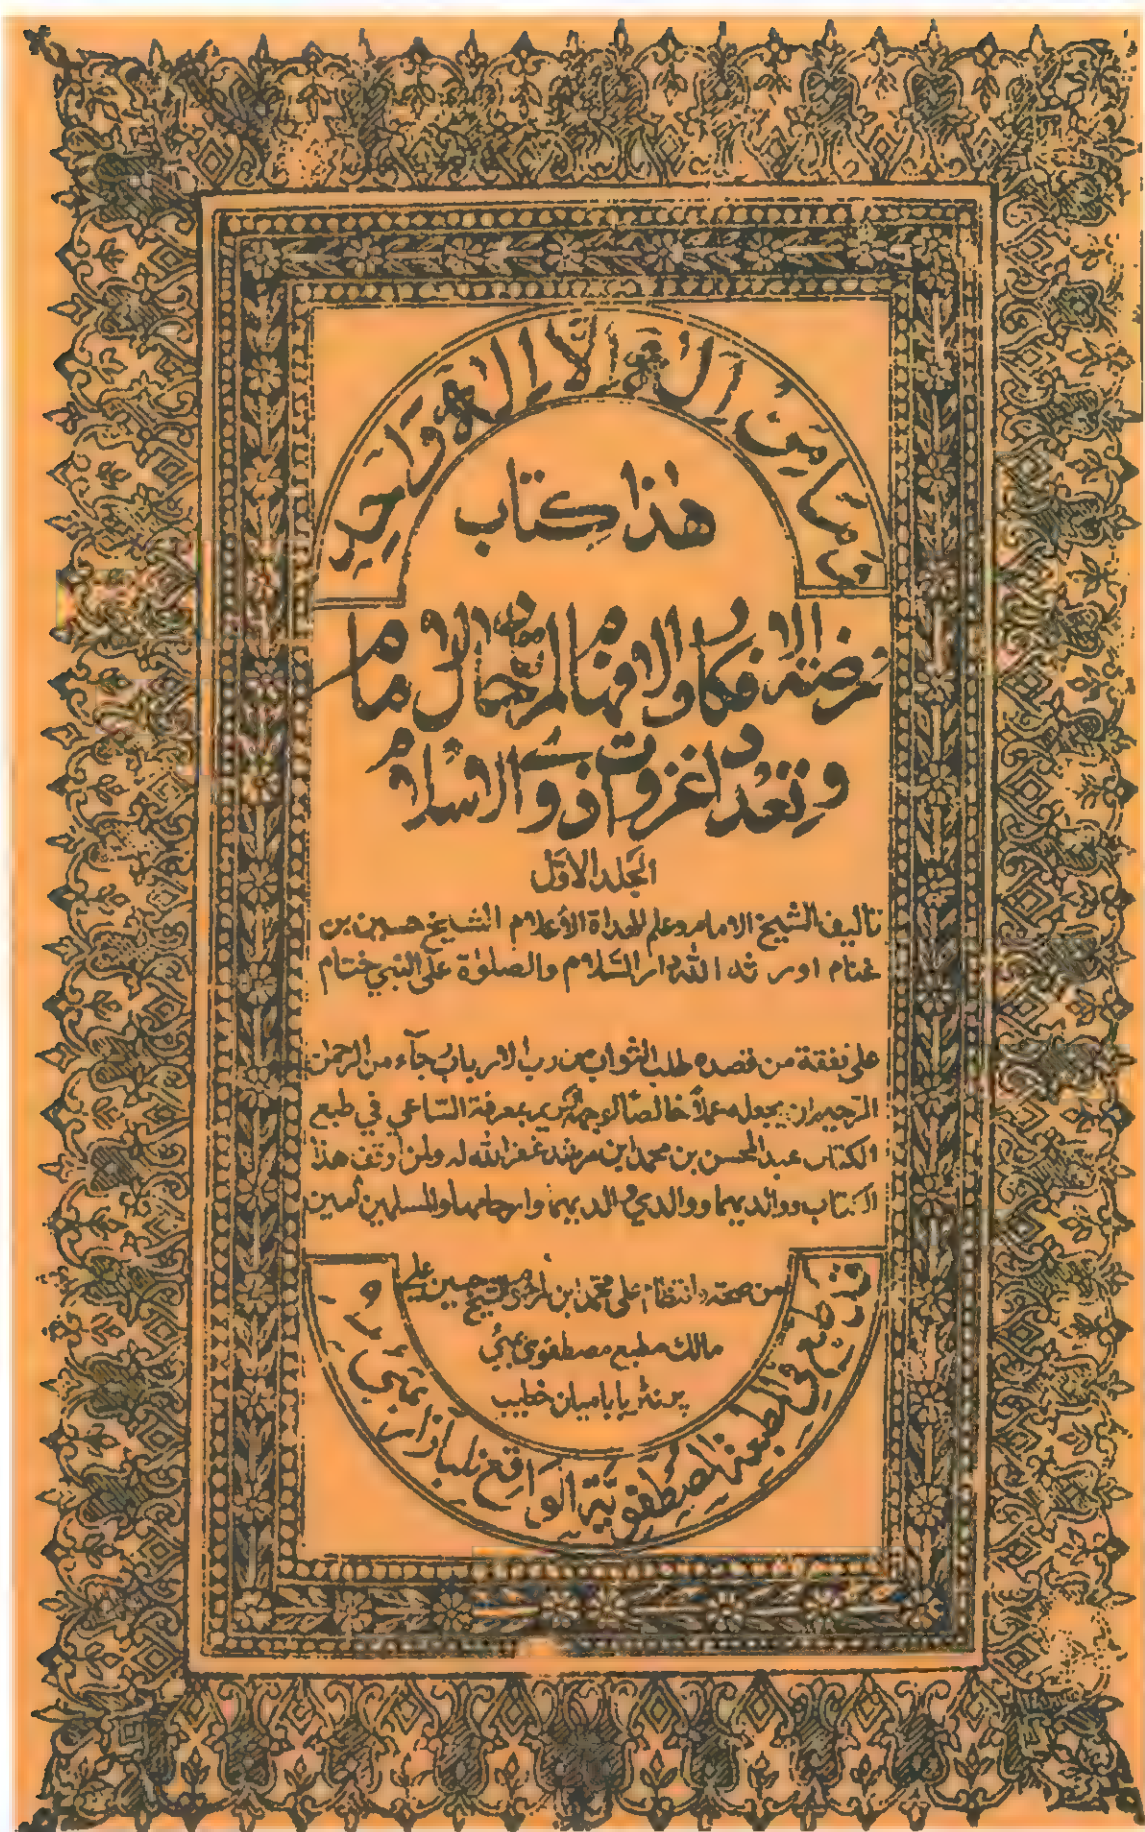 وَمَا مِنْ اِلٰهٍ اِلَّا اِلٰهٌ وَاحِد
هٰذا كِتَاب
روضة الافكار والافهام لمرتاد حال الامام
وتعداد غزوات ذوي الاسلام
المجلد الاول
تاليف الشيخ الامام وعلم الهداة الأعلام الشيخ حسين بن
غنام اورثه الله دار السَّلام والصلوٰة على النبي ختام
على نفقة من قصده طلب الثواب من رب الارباب جآء من الرحمٰن
الرحيم ان يجعله عملاً خالصًا لوجهه الكريم بمعرفة السّاعي في طبع
الكتاب عبد المحسن بن محمد ابن مرشد غفر الله له ولمن اوقف هذا
الكتاب ووالديهما ووالدي والديهما وارحامهما والمسلمين آمين
من صحته وانتظام على محمد ابن شيخ حسين علي
مالك مطبع مصطفوي بمبئي
پرنٹر بابا ميان خطيب
وقد طبع في المطبعة المصطفوية الواقع نلبازار بمبئي